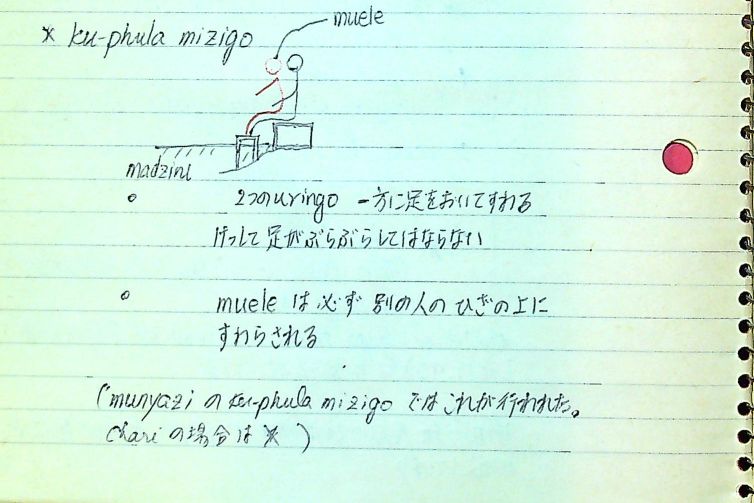 muele
* ku-phula mizigo
madzini
○ 2つのuringo 一方に足をおいてすわる
けっして足がぶらぶらしてはならない
○ muele は必ず別の人のひざの上に
すわらされる
(munyazi の ku-phula mizigo ではこれが行われた。
Chari の場合は × )